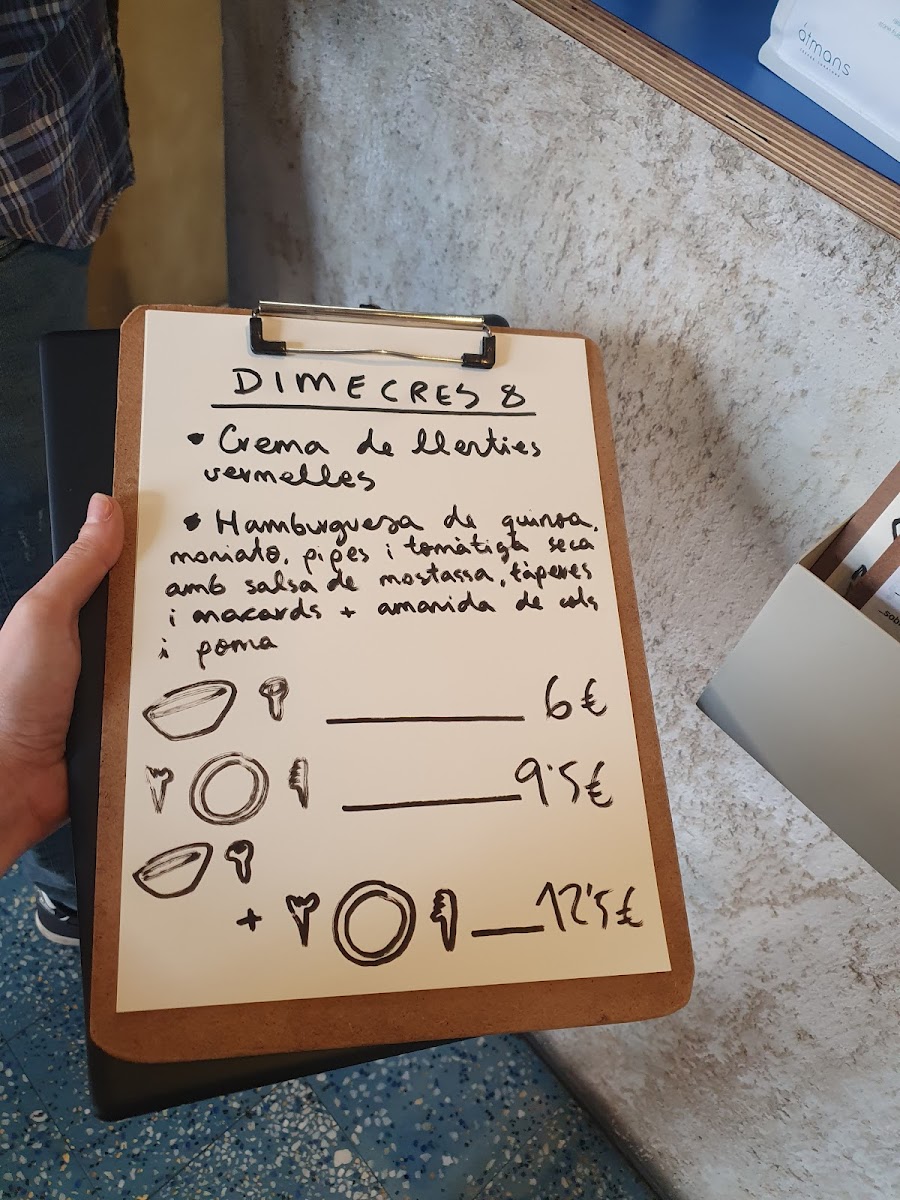 atmans
DIMECRES 8
• Crema de llenties
vermelles
• Hamburguesa de quinoa,
moniato, pipes i tomàtiga seca
amb salsa de mostassa, tàperes
i anacards + amanida de cols
i poma
6€
9'5€
+ 12'5€